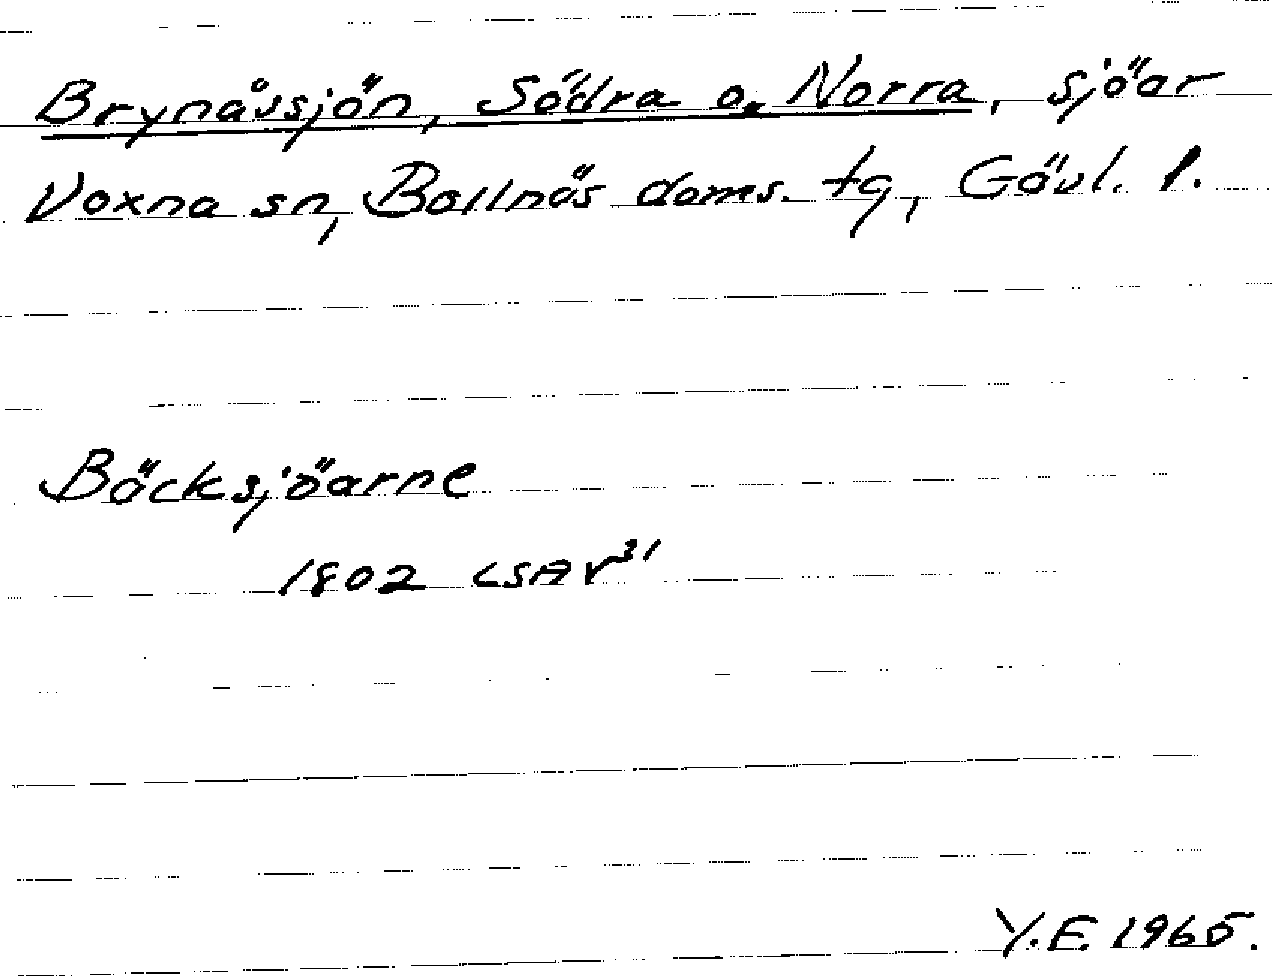 Brynåssjön, Södra o. Norra, sjöar
Voxna sn, Bollnäs doms. tg, Gävl. l.
Bäcksjöarne
1802 LSA V³¹
Y.E. 1965.